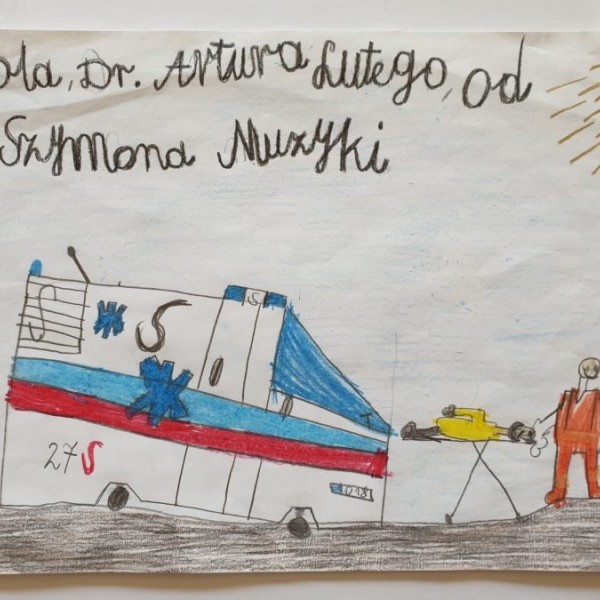 dla, Dr. Artura Lutego, od
Szymona Muzyki
S
S
S
27S